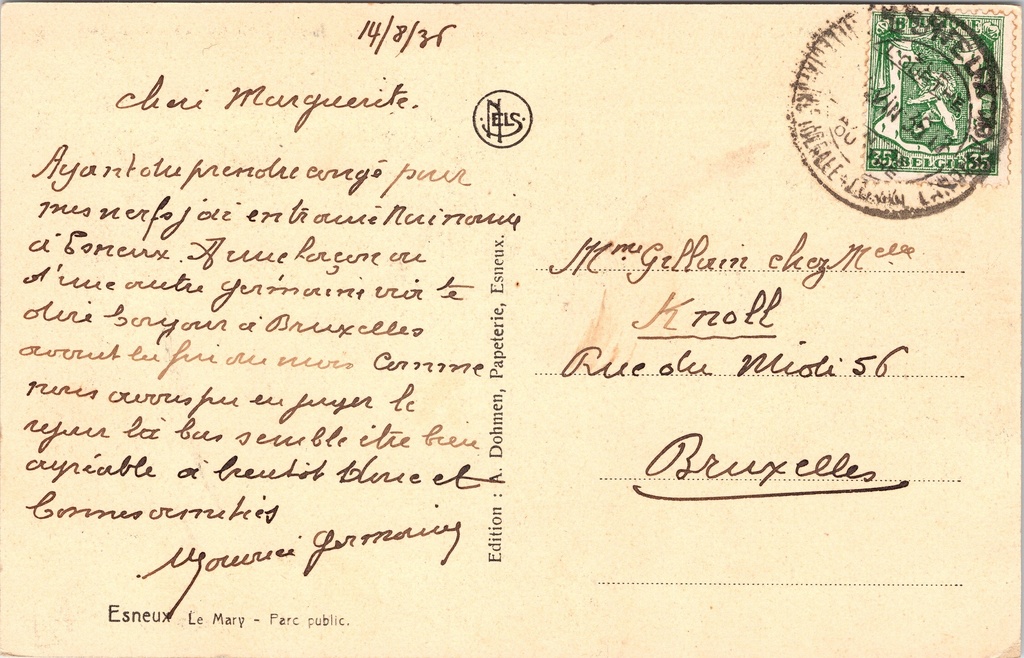 14/8/36
cheri Marguerite.
Ayant du prendre congé pour
mes nerfs j'ai entrainé
à Esneux. D'une façon ou
d'une autre germaine vaix te
dire bonjour à Bruxelles
avant la fin du mois Comme
nous avons pu en juger le
sejour là bas semble être bien
agréable à bientôt donc et
bonnes amitiés
Maurice Germaine
Esneux Le Mary - Parc public.
NELS
Edition : A. Dohmen, Papeterie, Esneux.
BELGIQUE
35 BELGIE 35
Mme Gillain chez Melle
Knoll
Rue du Midi 56
Bruxelles